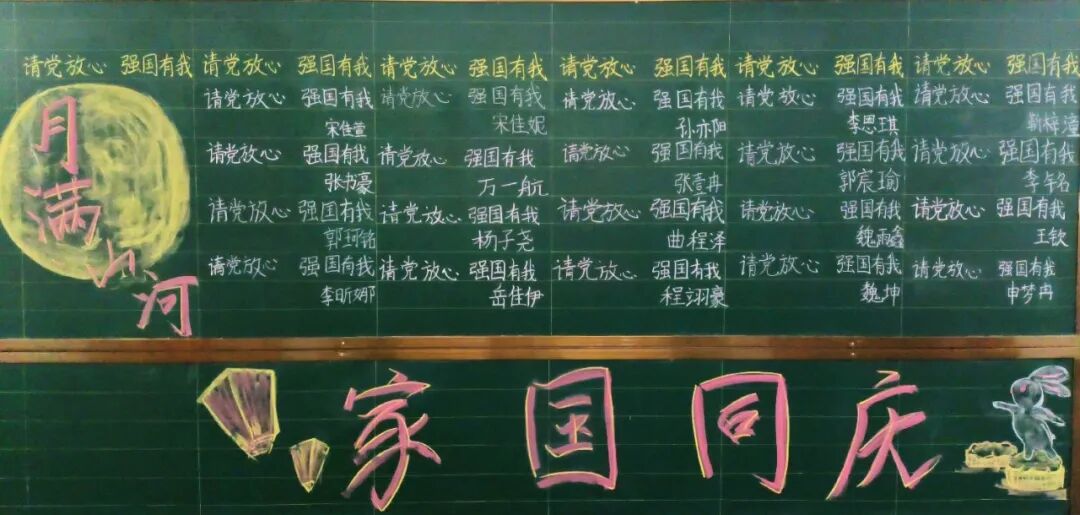 月满山河
请党放心 强国有我 请党放心 强国有我 请党放心 强国有我 请党放心 强国有我 请党放心 强国有我 请党放心 强国有我
请党放心 强国有我 请党放心 强国有我 请党放心 强国有我 请党放心 强国有我 请党放心 强国有我
宋佳萱 宋佳妮 孙亦阳 李恩琪 靳梓潼
请党放心 强国有我 请党放心 强国有我 请党放心 强国有我 请党放心 强国有我 请党放心 强国有我
张书豪 万一航 张壹冉 郭宸瑜 李铭
请党放心 强国有我 请党放心 强国有我 请党放心 强国有我 请党放心 强国有我 请党放心 强国有我
郭珂铭 杨子尧 曲程泽 魏雨鑫 王钦
请党放心 强国有我 请党放心 强国有我 请党放心 强国有我 请党放心 强国有我 请党放心 强国有我
李昕娜 岳佳伊 程翊豪 魏坤 申梦冉
家国同庆